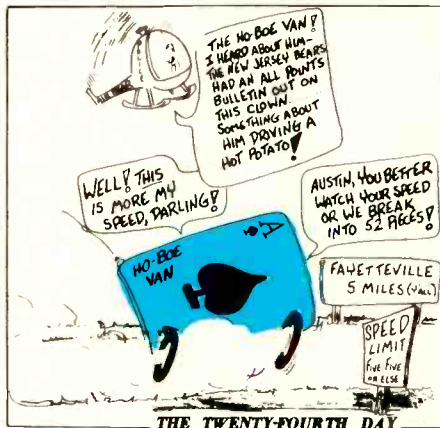 POLICE
THE HO-BOE VAN!
I HEARD ABOUT HIM-
THE NEW JERSEY BEARS
HAD AN ALL POINTS
BULLETIN OUT ON
THIS CLOWN.
SOMETHING ABOUT
HIM DRIVING A
HOT POTATO!
WELL! THIS
IS MORE MY
SPEED, DARLING!
AUSTIN, YOU BETTER
WATCH YOUR SPEED
OR WE BREAK
INTO 52 PIECES!
HO-BOE
VAN
A
FAYETTEVILLE
5 MILES (YALL)
SPEED
LIMIT
FIVE FIVE
OR ELSE
THE TWENTY-FOURTH DAY